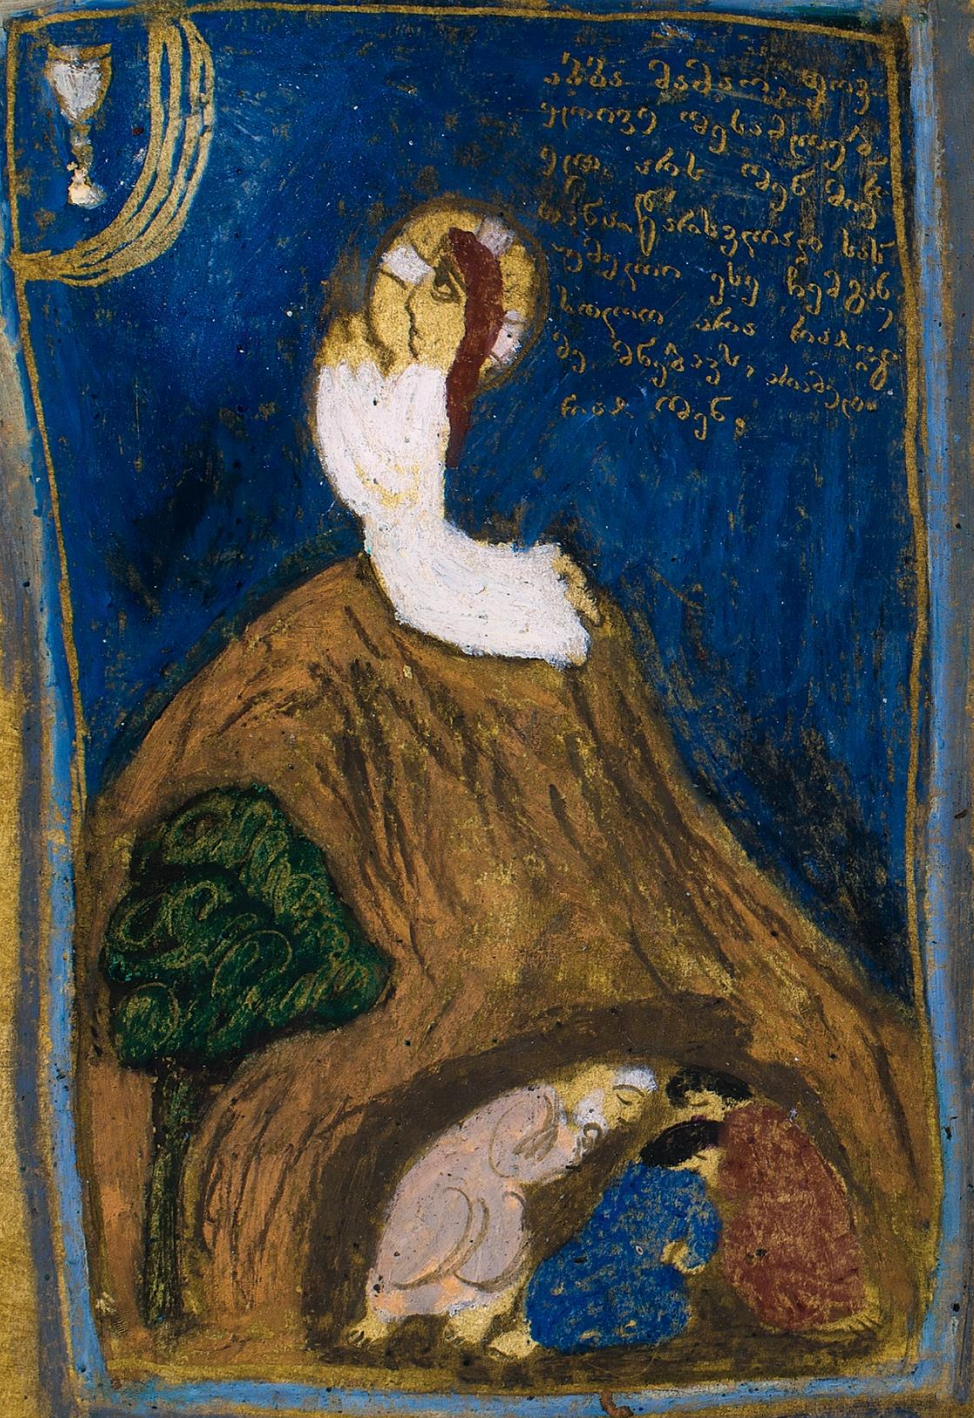 აბბა მამაო, ყოვ
ელივე შესაძლებ
ელ არს შენ მიერ
სას
უმელი ესე ჩემგან,
ხოლო არა რაჲ იგი
მე მნებავს, არამედ
რაჲ შენ.